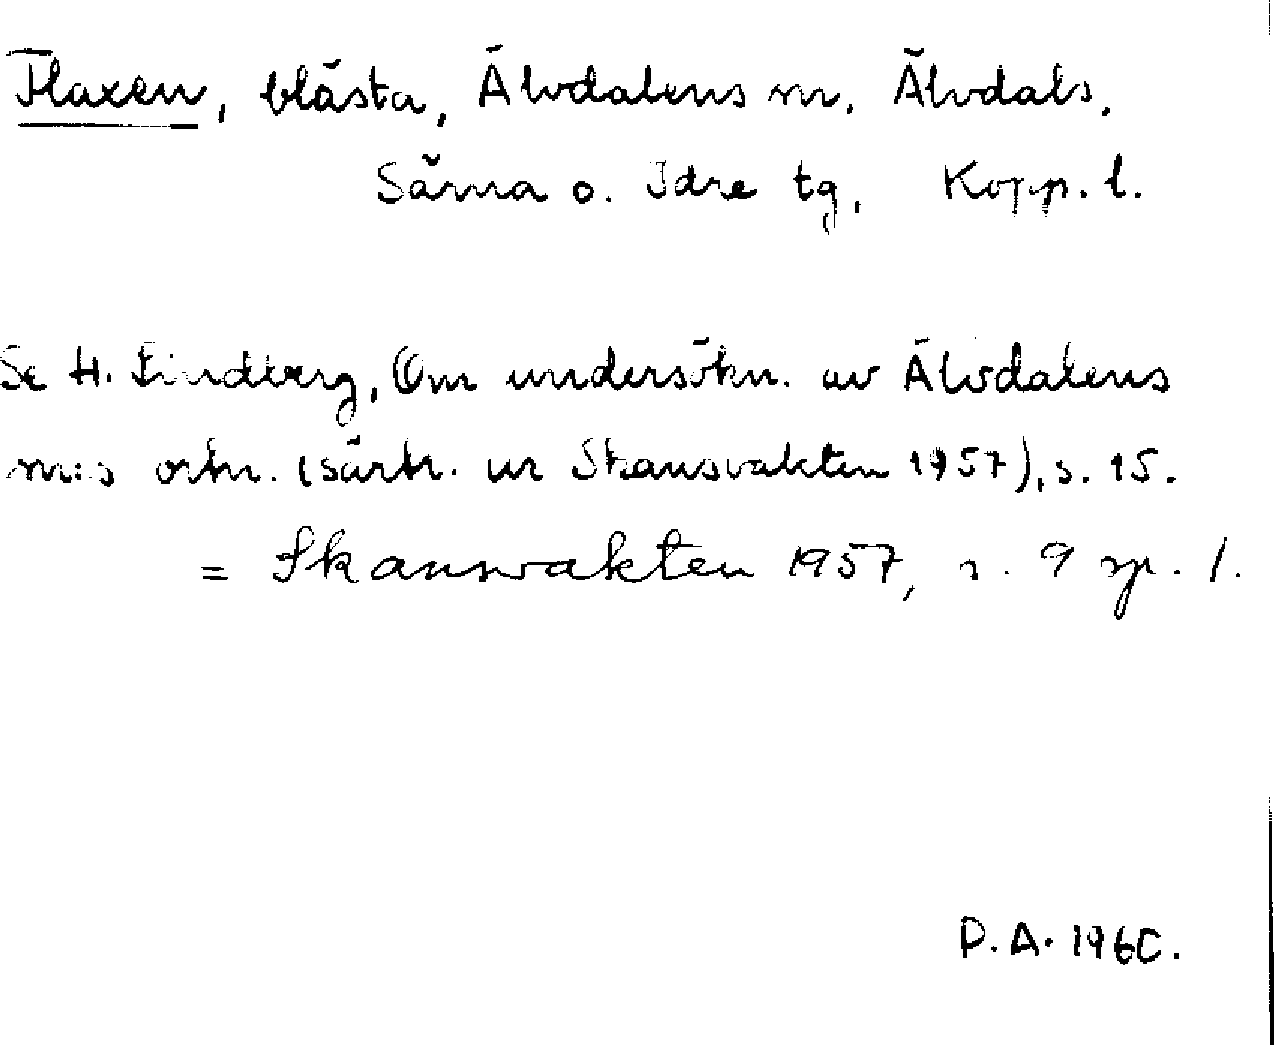 Flaxen, blästa, Älvdalens sn, Älvdals,
Särna o. Idre tg, Kopp. l.
Se H. Lindberg, Om undersökn. av Älvdalens
sn:s ortn. (särtr. ur Skansvakten 1957), s. 15.
= Skansvakten 1957, s. 9 sp. 1.
P.A. 1960.